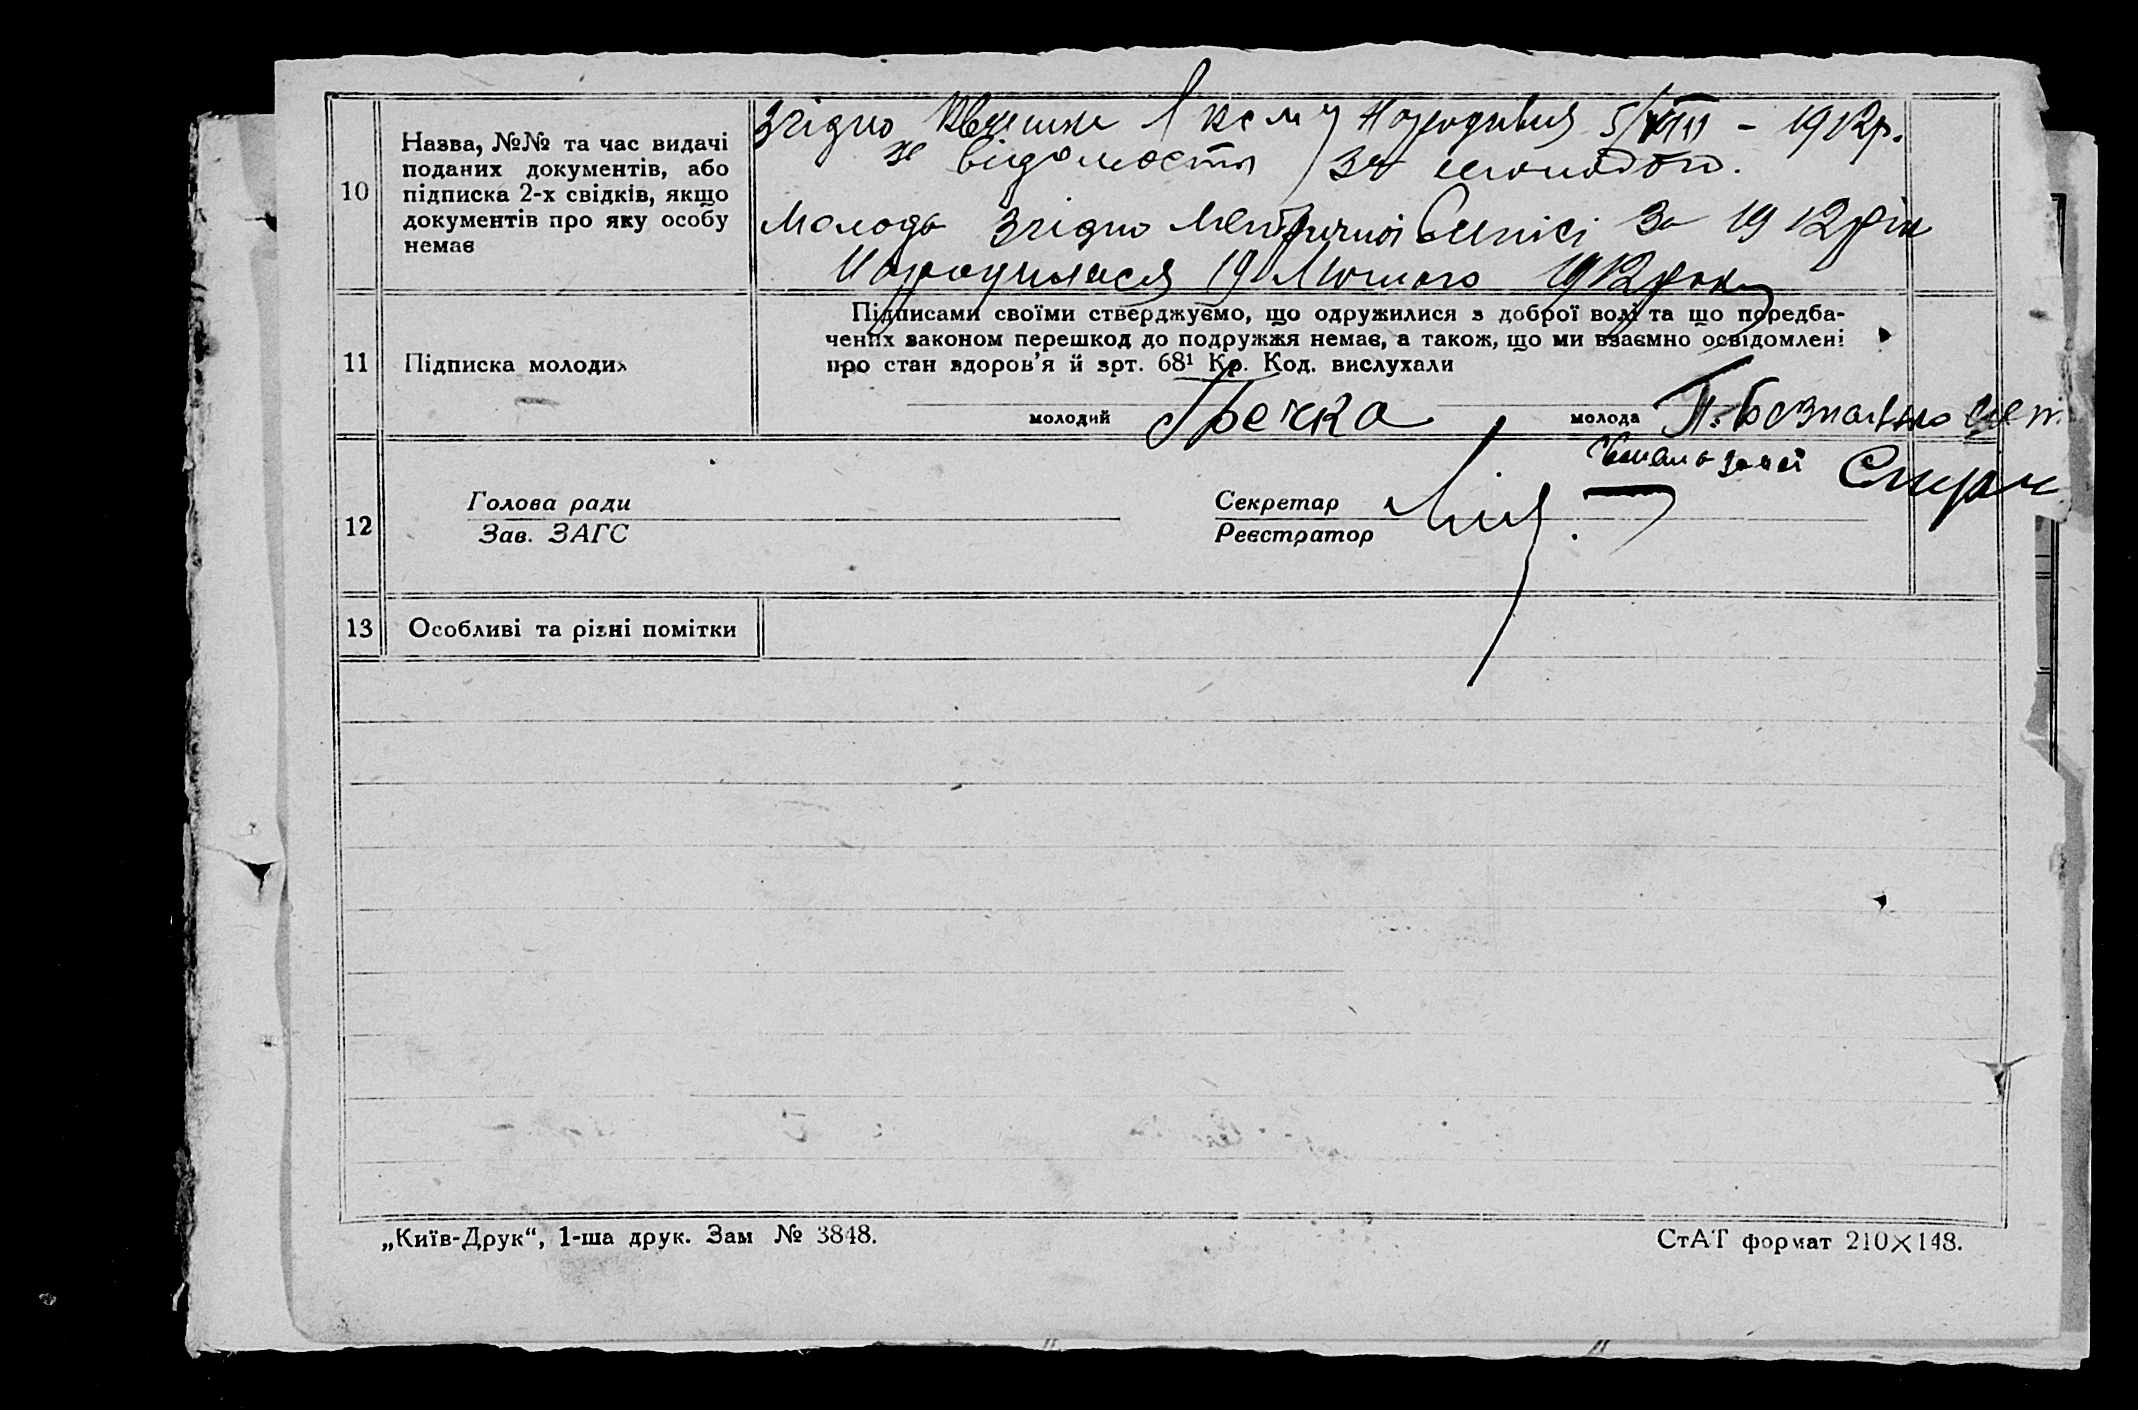 10
Назва, №№ та час видачі
поданих документів, або
підписка 2-х свідків, якщо
документів про яку особу
немає
Згідно 5/VIII - 1912р.
відомости за молодого.
Молода Згідно Метричної Виписі За 1912 рік
Народилася 19 Лютого 1912 року
11
Підписка молодих
Підписами своїми стверджуємо, що одружилися з доброї волі та що передба-
чених законом перешкод до подружжя немає, а також, що ми взаємно освідомлені
про стан здоров'я й арт. 68¹ Кр. Код. вислухали
молодий Гречка молода
12
Голова ради
Зав. ЗАГС
Секретар
Реєстратор
13
Особливі та різні помітки
„Київ-Друк“, 1-ша друк. Зам № 3848.
СтАТ формат 210×148.